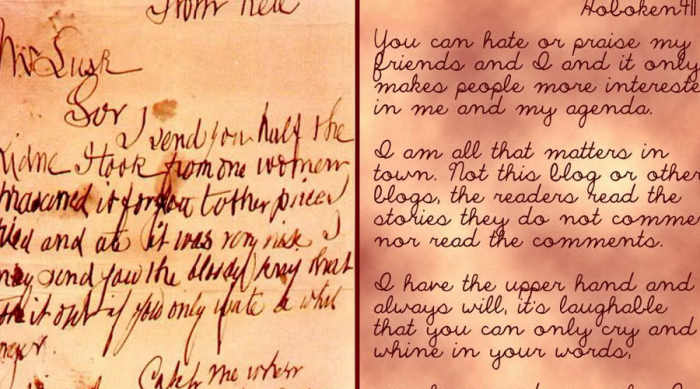 From hell
Mr Lusk
Sor
I send you half the
Kidne I took from one women
prasarved it for you tother piece I
fried and ate it was very nise I
may send you the bloody knif that
took it out if you only wate a whil
longer
Catch me when
Hoboken411
You can hate or praise my
friends and I and it only
makes people more intereste
in me and my agenda.
I am all that matters in
town. Not this blog or other
blogs, the readers read the
stories they do not comme
nor read the comments.
I have the upper hand and
always will, it's laughable
that you can only cry and
whine in your words,